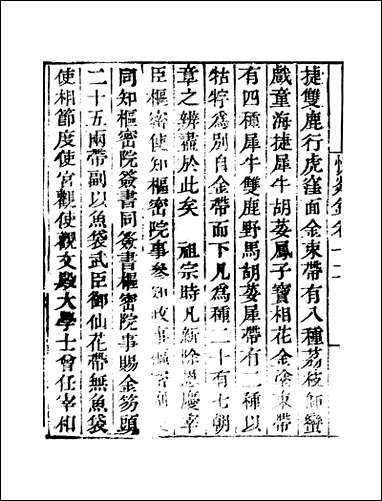 捷雙鹿行虎窪面金束帶有八種荔枝師蠻
戲童海捷犀牛胡荽鳳子寶相花金塗束帶
有四種犀牛雙鹿野馬胡荽犀帶有二種以
牯牸為別自金帶而下凡為種二十有七朝
章之辨盡於此矣　祖宗時凡新除恩慶宰
臣樞密使知樞密院事參知政事樞密副
同知樞密院簽書同簽書樞密院事賜金笏頭
二十五兩帶副以魚袋武臣御仙花帶無魚袋
使相節度使宮觀使觀文殿大學士曾任宰相